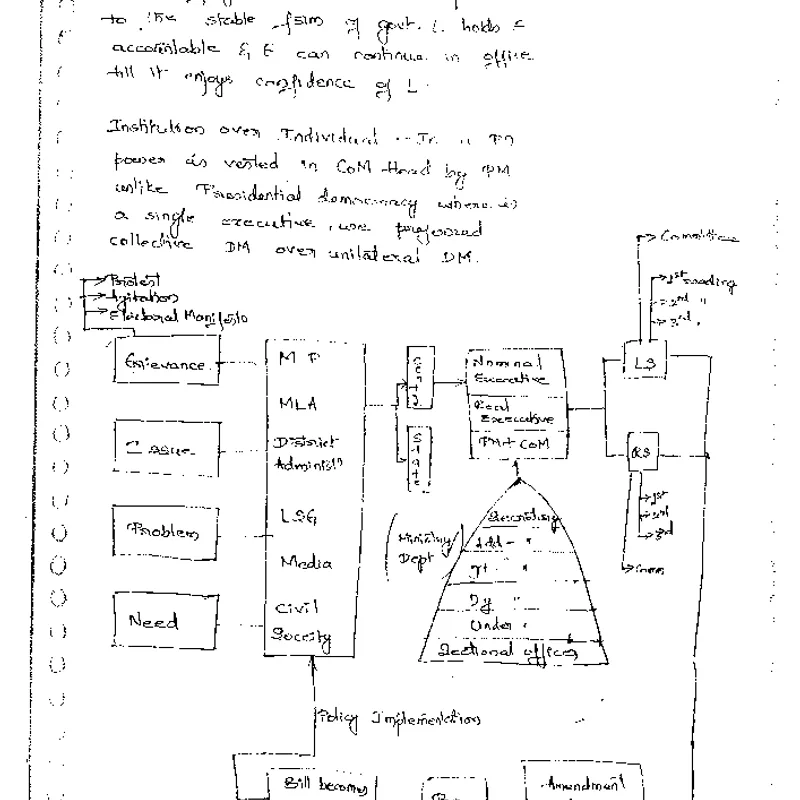 to the stable form of govt. L holds E
accountable & E can continue in office
till it enjoys confidence of L.
Institution over Individual -- In
power is vested in CoM Head by PM
unlike Presidential democracy where is
a single executive, we preferred
collective DM over unilateral DM.
Protest
Agitation
Electoral Manifesto
Grievance
Issue
Problem
Need
MP
MLA
District
Administn
LSG
Media
Civil
Society
State
Nominal
Executive
Real
Executive
PM + CoM
LS
Committee
1st reading
2nd "
3rd "
RS
1st
2nd
3rd
Comm
Ministry
Dept
Secretary
Add - "
Jt - "
Dy "
Under "
Sectional officer
Policy Implementation
Bill becomes
Amendment